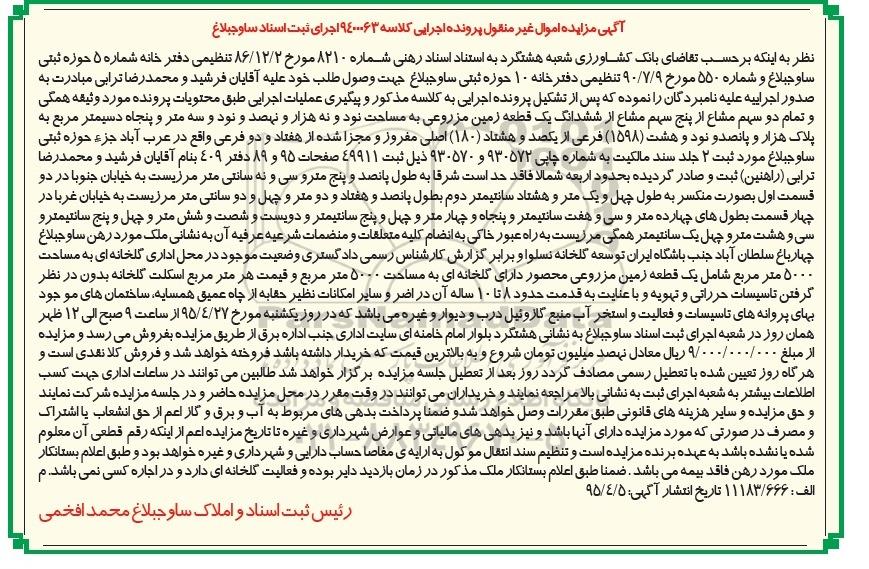 آگهی مزایده اموال غیر منقول پرونده اجرایی کلاسه ۹۴۰۰۰۶۳ اجرای ثبت اسناد ساوجبلاغ
نظر به اینکه برحسب تقاضای بانک کشاورزی شعبه هشتگرد به استناد اسناد رهنی شماره ۸۲۱۰ مورخ ۸۶/۱۲/۲ تنظیمی دفتر خانه شماره ۵ حوزه ثبتی
ساوجبلاغ و شماره ۵۵۰ مورخ ۹۰/۷/۹ تنظیمی دفترخانه ۱۰ حوزه ثبتی ساوجبلاغ جهت وصول طلب خود علیه آقایان فرشید و محمدرضا ترابی مبادرت به
صدور اجراییه علیه نامبردگان را نموده که پس از تشکیل پرونده اجرایی به کلاسه مذکور و پیگیری عملیات اجرایی طبق محتویات پرونده مورد وثیقه همگی
و تمام دو سهم مشاع از پنج سهم مشاع از ششدانگ یک قطعه زمین مزروعی به مساحت نود و نه هزار و نهصد و نود و سه متر و پنجاه دسیمتر مربع به
پلاک هزار و پانصدو نود و هشت (۱۵۹۸) فرعی از یکصد و هشتاد (۱۸۰) اصلی مفروز و مجزا شده از هفتاد و دو فرعی واقع در عرب آباد جزء حوزه ثبتی
ساوجبلاغ مورد ثبت ۲ جلد سند مالکیت به شماره چاپی ۹۳۰۵۷۲ و ۹۳۰۵۷۰ ذیل ثبت ۴۹۹۱۱ صفحات ۹۵ و ۸۹ دفتر ۴۰۹ بنام آقایان فرشید و محمدرضا
ترابی (راهنین) ثبت و صادر گردیده بحدود اربعه شمالا فاقد حد است شرقا به طول پانصد و پنج متر و سی و نه سانتی متر مرزیست به خیابان جنوبا در دو
قسمت اول بصورت منکسر به طول چهل و یک متر و هشتاد سانتیمتر دوم بطول پانصد و هفتاد و دو متر و چهل و دو سانتی متر مرزیست به خیابان غربا در
چهار قسمت بطول های چهارده متر و سی و هفت سانتیمتر و پنجاه و چهار متر و چهل و پنج سانتیمتر و دویست و شصت و شش متر و چهل و پنج سانتیمتر و
سی و هشت متر و چهل یک سانتیمتر همگی مرزیست به راه عبور خاکی به انضام کلیه متعلقات و منضمات شرعیه عرفیه آن به نشانی ملک مورد رهن ساوجبلاغ
چهارباغ سلطان آباد جنب باشگاه ایران توسعه گلخانه نسلوا و برابر گزارش کارشناس رسمی دادگستری وضعیت موجود در محل اداری گلخانه ای به مساحت
۵۰۰۰ متر مربع شامل یک قطعه زمین مزروعی محصور دارای گلخانه ای به مساحت ۵۰۰۰ متر مربع و قیمت هر متر مربع اسکلت گلخانه بدون در نظر
گرفتن تاسیسات حرراتی و تهویه و با عنایت به قدمت حدود ۸ تا ۱۰ ساله آن در اضر و سایر امکانات نظیر حقابه از چاه عمیق همسایه، ساختمان های مو جود
بهای پروانه های تاسیسات و فعالیت و استخر آب منبع گازوئیل درب و دیوار و غیره می باشد که در روز یکشنبه مورخ ۹۵/۴/۲۷ از ساعت ۹ صبح الی ۱۲ ظهر
همان روز در شعبه اجرای ثبت اسناد ساوجبلاغ به نشانی هشتگرد بلوار امام خامنه ای سایت اداری جنب اداره برق از طریق مزایده بفروش می رسد و مزایده
از مبلغ ۹/۰۰۰/۰۰۰/۰۰۰ ریال معادل نهصد میلیون تومان شروع و به بالاترین قیمت که خریدار داشته باشد فروخته خواهد شد و فروش کلا نقدی است و
هر گاه روز تعیین شده با تعطیل رسمی مصادف گردد روز بعد از تعطیل جلسه مزایده بر گزار خواهد شد طالبین می توانند در ساعات اداری جهت کسب
اطلاعات بیشتر به شعبه اجرای ثبت به نشانی بالا مراجعه نمایند و خریداران می توانند در وقت مقرر در محل مزایده حاضر و در جلسه مزایده شرکت نمایند
و حق مزایده و سایر هزینه های قانونی طبق مقررات وصل خواهد شدو ضمنا پرداخت بدهی های مربوط به آب و برق و گاز اعم از حق انشعاب یا اشتراک
و مصرف در صورتی که مورد مزایده دارای آنها باشد و نیز بدهی های مالیاتی و عوارض شهرداری و غیره تا تاریخ مزایده اعم از اینکه رقم قطعی آن معلوم
شده یا نشده باشد به عهده برنده مزایده است و تنظیم سند انتقال موکول به ارایه ی مفاصا حساب دارایی و شهرداری و غیره خواهد بود و طبق اعلام بستانکار
ملک مورد رهن فاقد بیمه می باشد . ضمنا طبق اعلام بستانکار ملک مذکور در زمان بازدید دایر بوده و فعالیت گلخانه ای دارد و در اجاره کسی نمی باشد. م
الف : ۱۱۱۸۳/۶۶۶ تاریخ انتشار آگهی: ۹۵/۴/۵
رئیس ثبت اسناد و املاک ساوجبلاغ محمد افخمی
ParsNamadData
۰۲۱-۸۸۳۴۹۶۷۰-۵